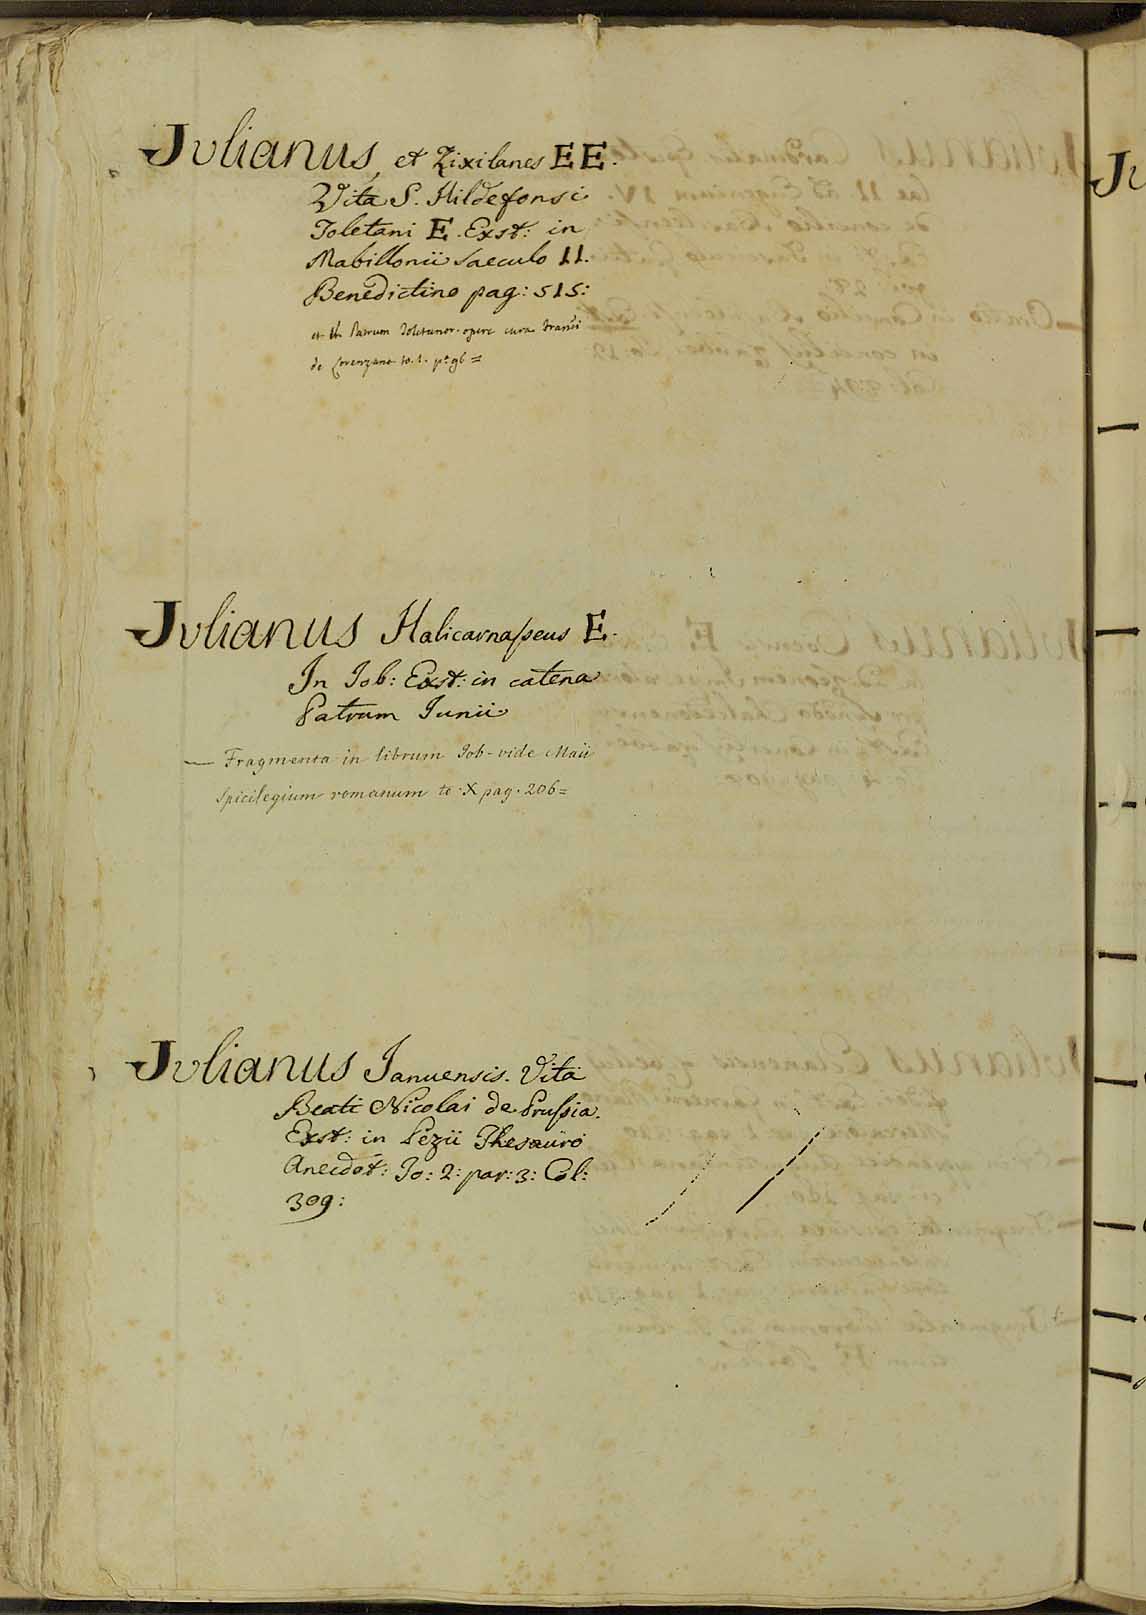 Julianus, et Zixilanes EE.
Vita S. Hildefonsi
Toletani E. Exst: in
Mabillonii saeculo II.
Benedictino pag: 515:
et Patrum Toletanor. opere cura
de Lorenzana to. 1. pª 96=
Julianus Halicarnaſseus E.
In Iob: Exst: in catena
Patrum Junii
— Fragmenta in librum Job - vide Maii
Spicilegium romanum to. X pag. 206=
Julianus Januensis. Vita
Beati Nicolai de Pruſsia.
Exst: in Pezii Thesauro
Anecdot: To: 2: par: 3: Col:
309: